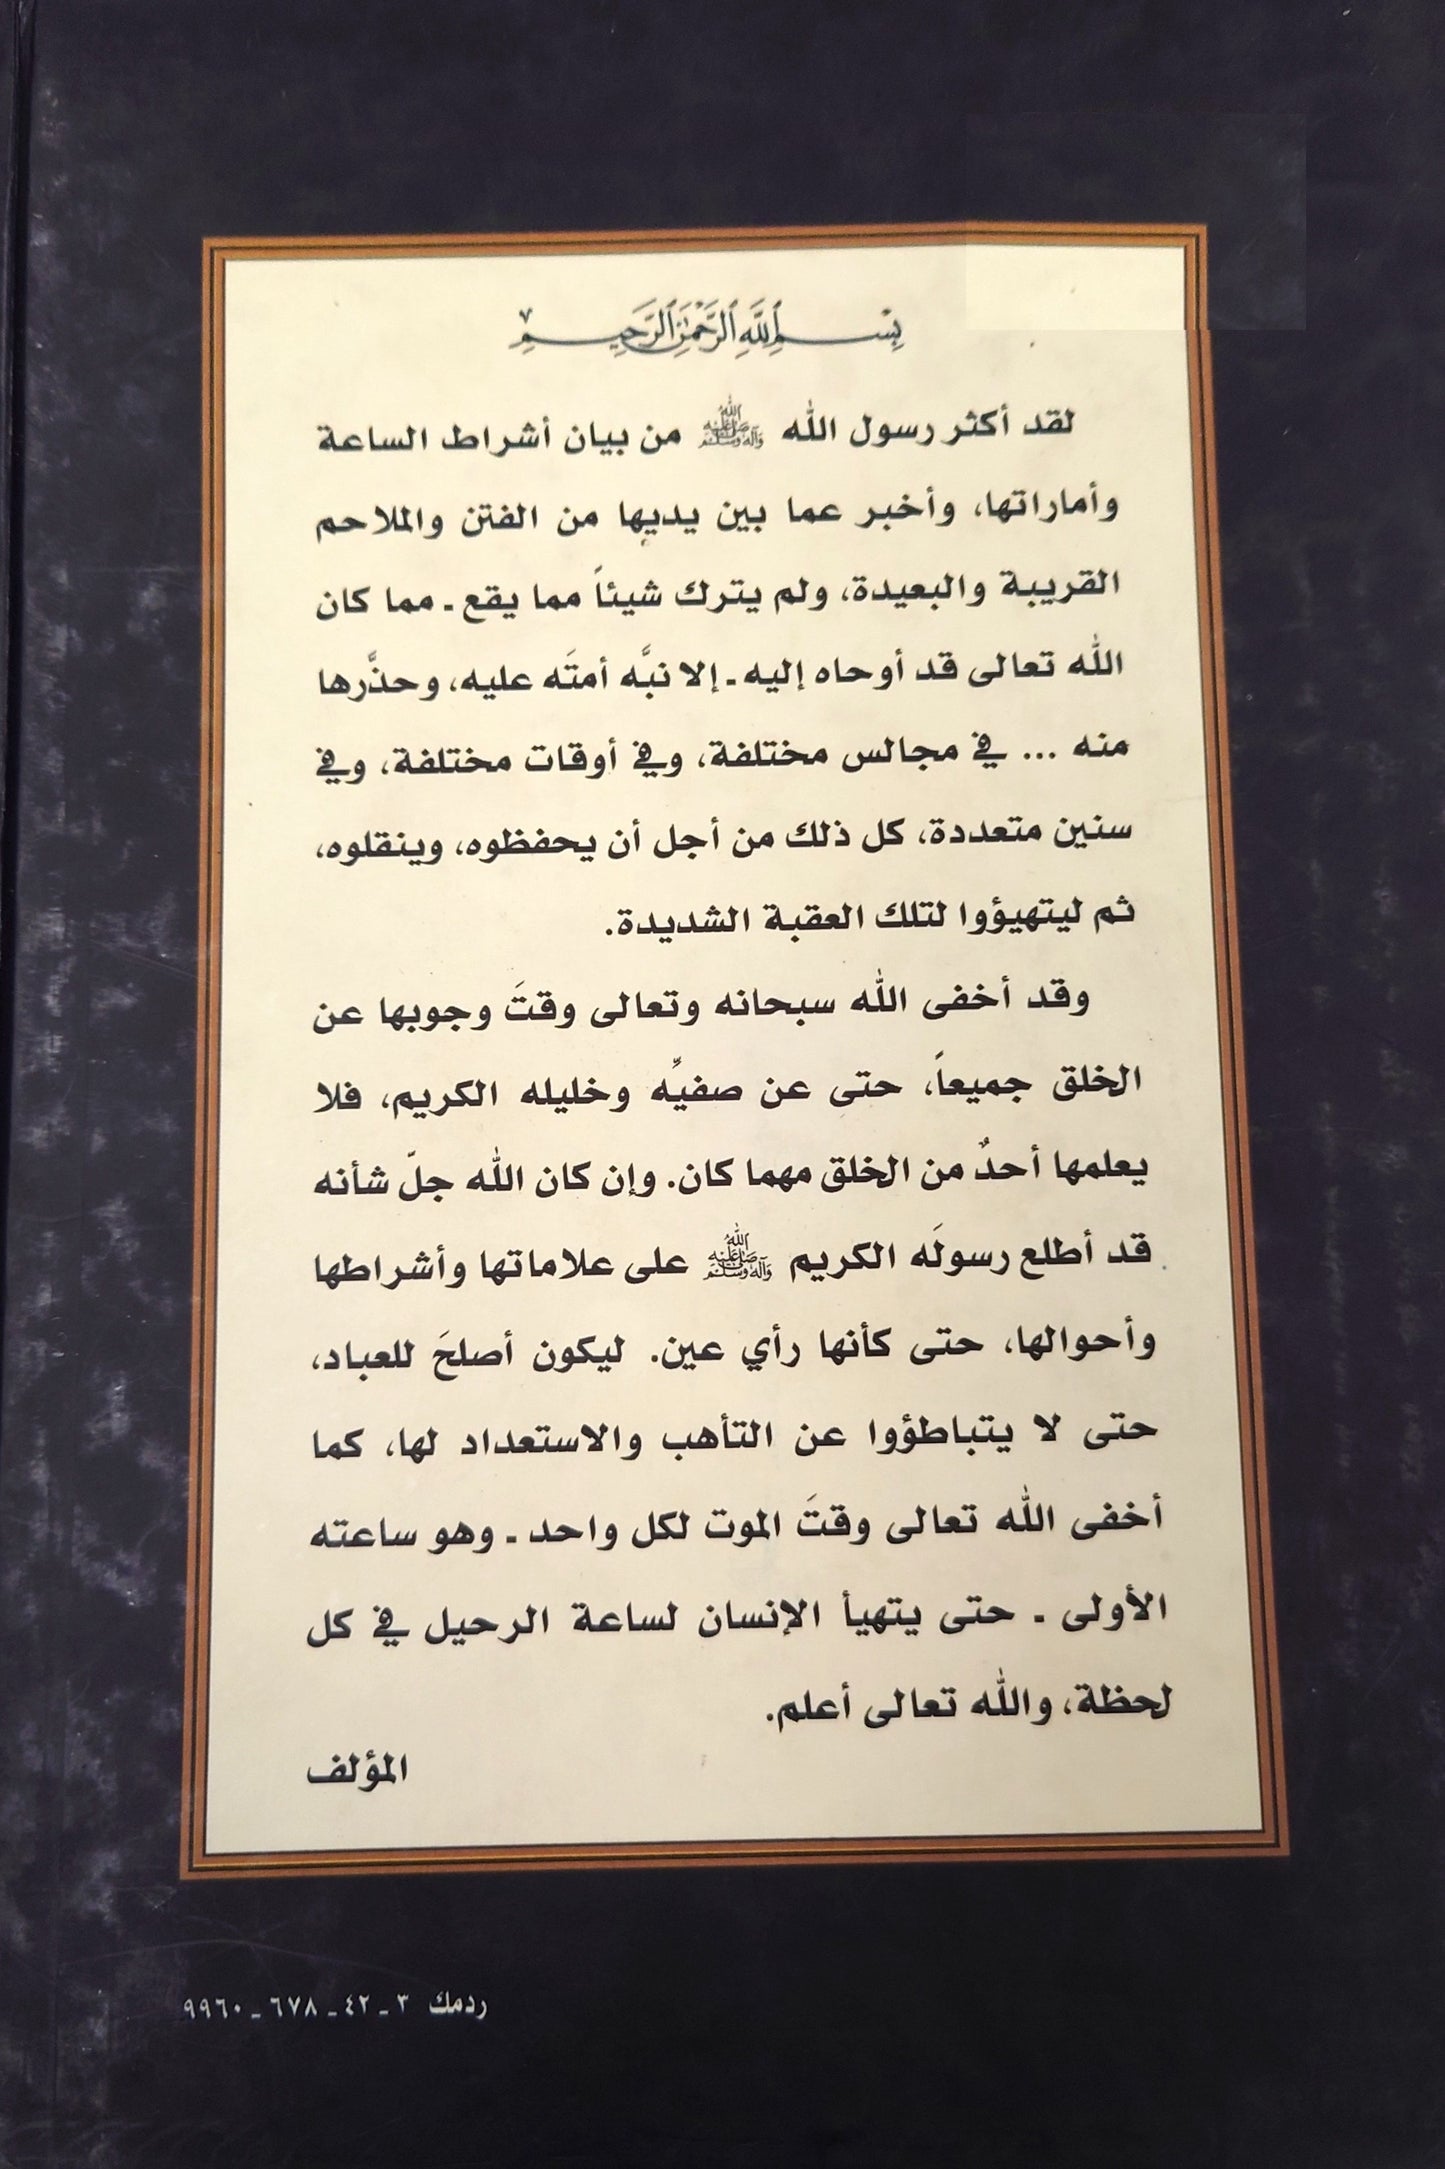 بِسْمِ ٱللَّهِ ٱلرَّحْمَٰنِ ٱلرَّحِيمِ
لقد أكثر رسول الله ﷺ من بيان أشراط الساعة
وأماراتها، وأخبر عما بين يديها من الفتن والملاحم
القريبة والبعيدة، ولم يترك شيئاً مما يقع ـ مما كان
الله تعالى قد أوحاه إليه ـ إلا نبَّه أمتَه عليه، وحذَّرها
منه ... في مجالس مختلفة، وفي أوقات مختلفة، وفي
سنين متعددة، كل ذلك من أجل أن يحفظوه، وينقلوه،
ثم ليتهيؤوا لتلك العقبة الشديدة.
وقد أخفى الله سبحانه وتعالى وقتَ وجوبها عن
الخلق جميعاً، حتى عن صفيِّه وخليله الكريم، فلا
يعلمها أحدٌ من الخلق مهما كان. وإن كان الله جلّ شأنه
قد أطلع رسولَه الكريم ﷺ على علاماتها وأشراطها
وأحوالها، حتى كأنها رأي عين. ليكون أصلحَ للعباد،
حتى لا يتباطؤوا عن التأهب والاستعداد لها، كما
أخفى الله تعالى وقتَ الموت لكل واحد ـ وهو ساعته
الأولى ـ حتى يتهيأ الإنسان لساعة الرحيل في كل
لحظة، والله تعالى أعلم.
المؤلف
ردمك ٣ ـ ٤٢ ـ ٦٧٨ ـ ٩٩٦٠